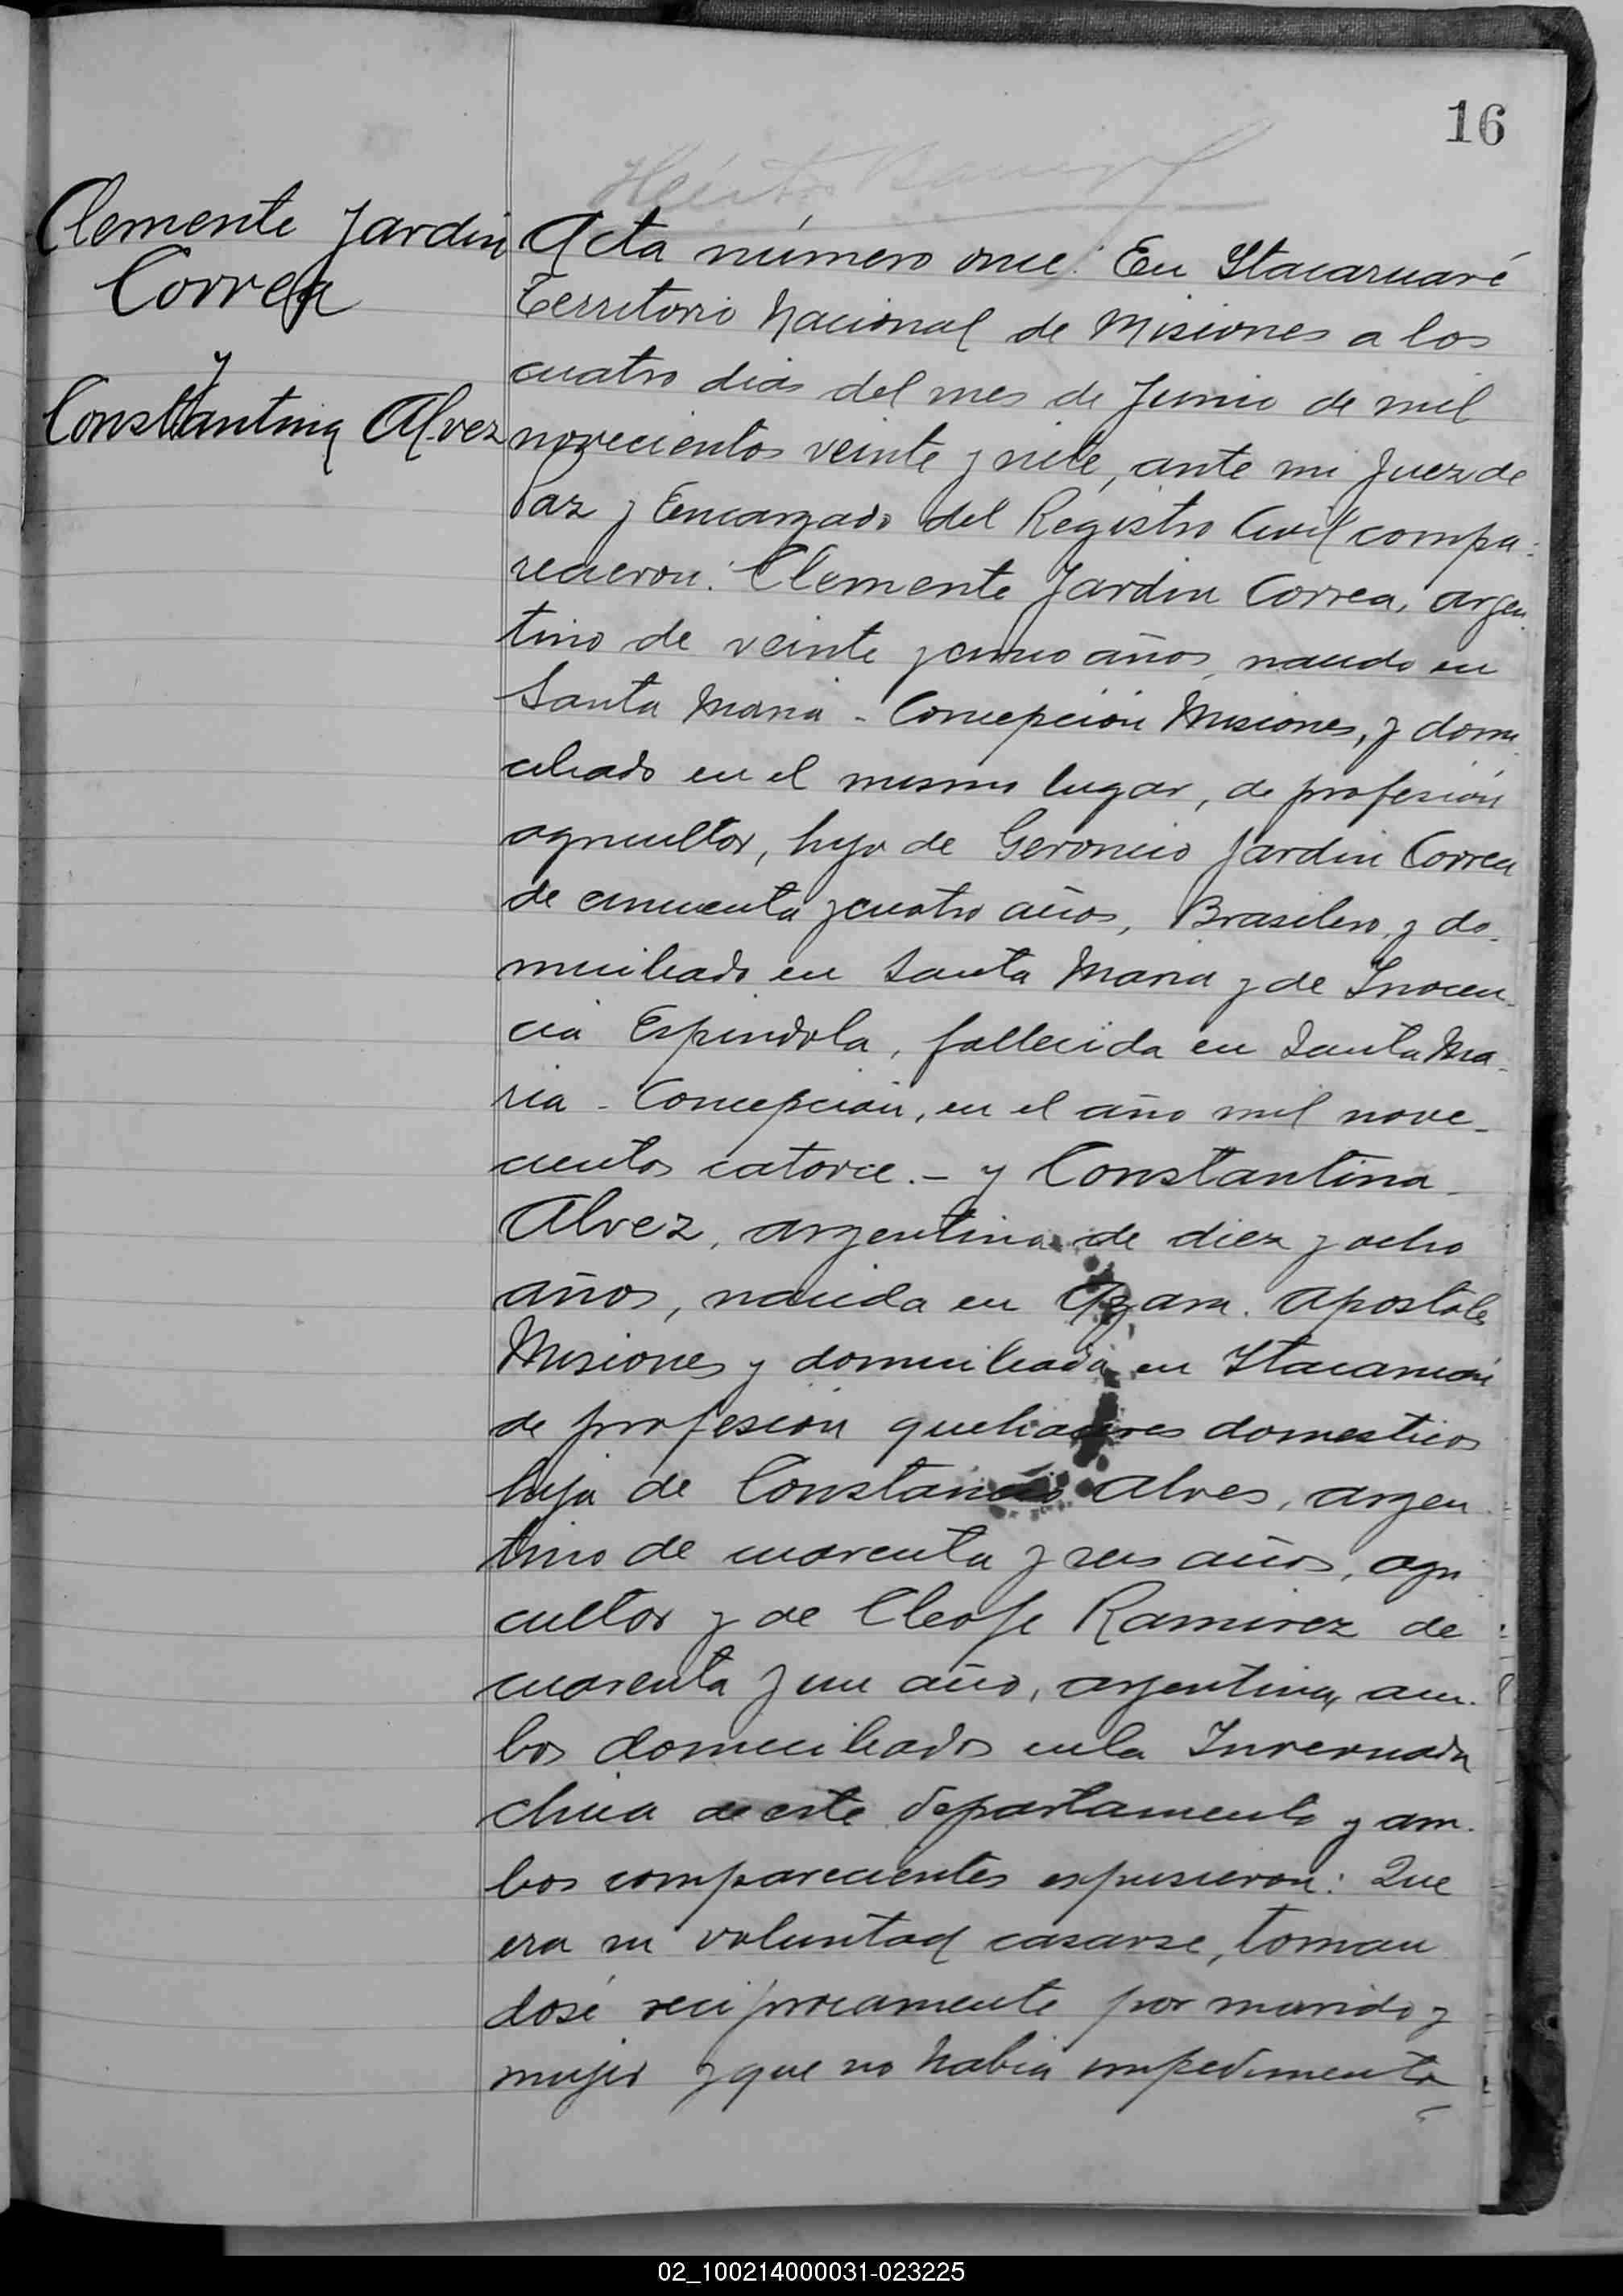 16
Clemente Jardin
Correa
y
Constantina Alvez
Acta número once: En Itacaruaré
Territorio Nacional de Misiones a los
cuatro dias del mes de Junio de mil
novecientos veinte y siete, ante mi Juez de
Paz y Encargado del Registro Civil compa-
recieron: Clemente Jardin Correa, argen
tino de veinte y cinco años, nacido en
Santa Maria - Concepción Misiones, y domi
ciliado en el mismo lugar, de profesión
agricultor, hijo de Geroncio Jardin Correa
de cincuenta y cuatro años, Brasilero, y do-
miciliado en Santa Maria y de Inocen-
cia Espindola, fallecida en Santa Ma-
ria - Concepción, en el año mil nove-
cientos catorce.- y Constantina
Alvez, argentina de diez y ocho
años, nacida en Azara. Apostoles
Misiones y domiciliada en Itacaruaré
de profesión quehaceres domesticos
hija de Constancio Alves, argen
tino de cuarenta y seis años, agri
cultor y de Cleofe Ramirez de
cuarenta y un año, argentina, am-
bos domiciliados en la Invernada
chica de este departamento y am-
bos comparecientes expusieron: Que
era su voluntad casarse, toman
dosé reciprocamente por marido y
mujer y que no habia impedimento
02_100214000031-023225